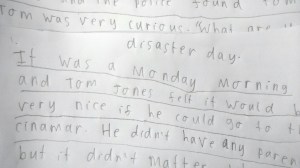 and the police found Tom
Tom was very curious. "What are
disaster day.
It was a Monday Morning
and Tom Jones felt it would b
very nice if he could go to t
cinamar. He didn't have any paren
but it didn't matter